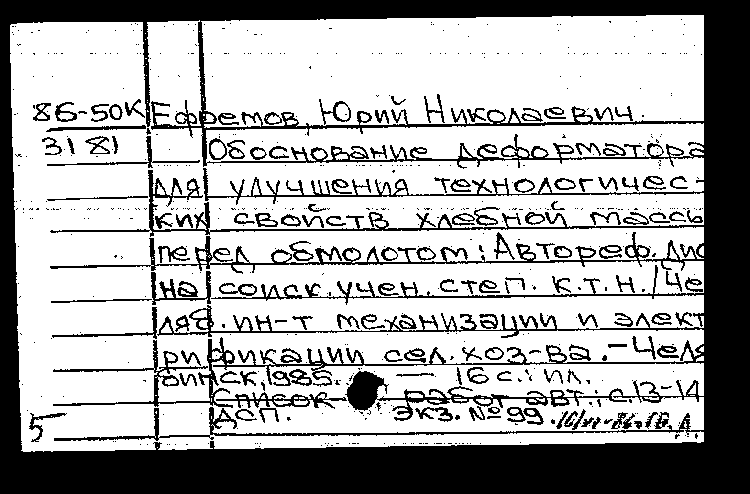 86-50К Ефремов, Юрий Николаевич.
3181 Обоснование деформатора
для улучшения технологичес-
ких свойств хлебной массы
перед обмолотом: Автореф. дис
на соиск. учен. степ. к.т.н. / Че
ляб. ин-т механизации и элект
рификации сел. хоз-ва. - Челя
бинск, 1985. — 16 с.: ил.
Список работ авт.: с.13-14
ДСП. Экз. № 99.
5